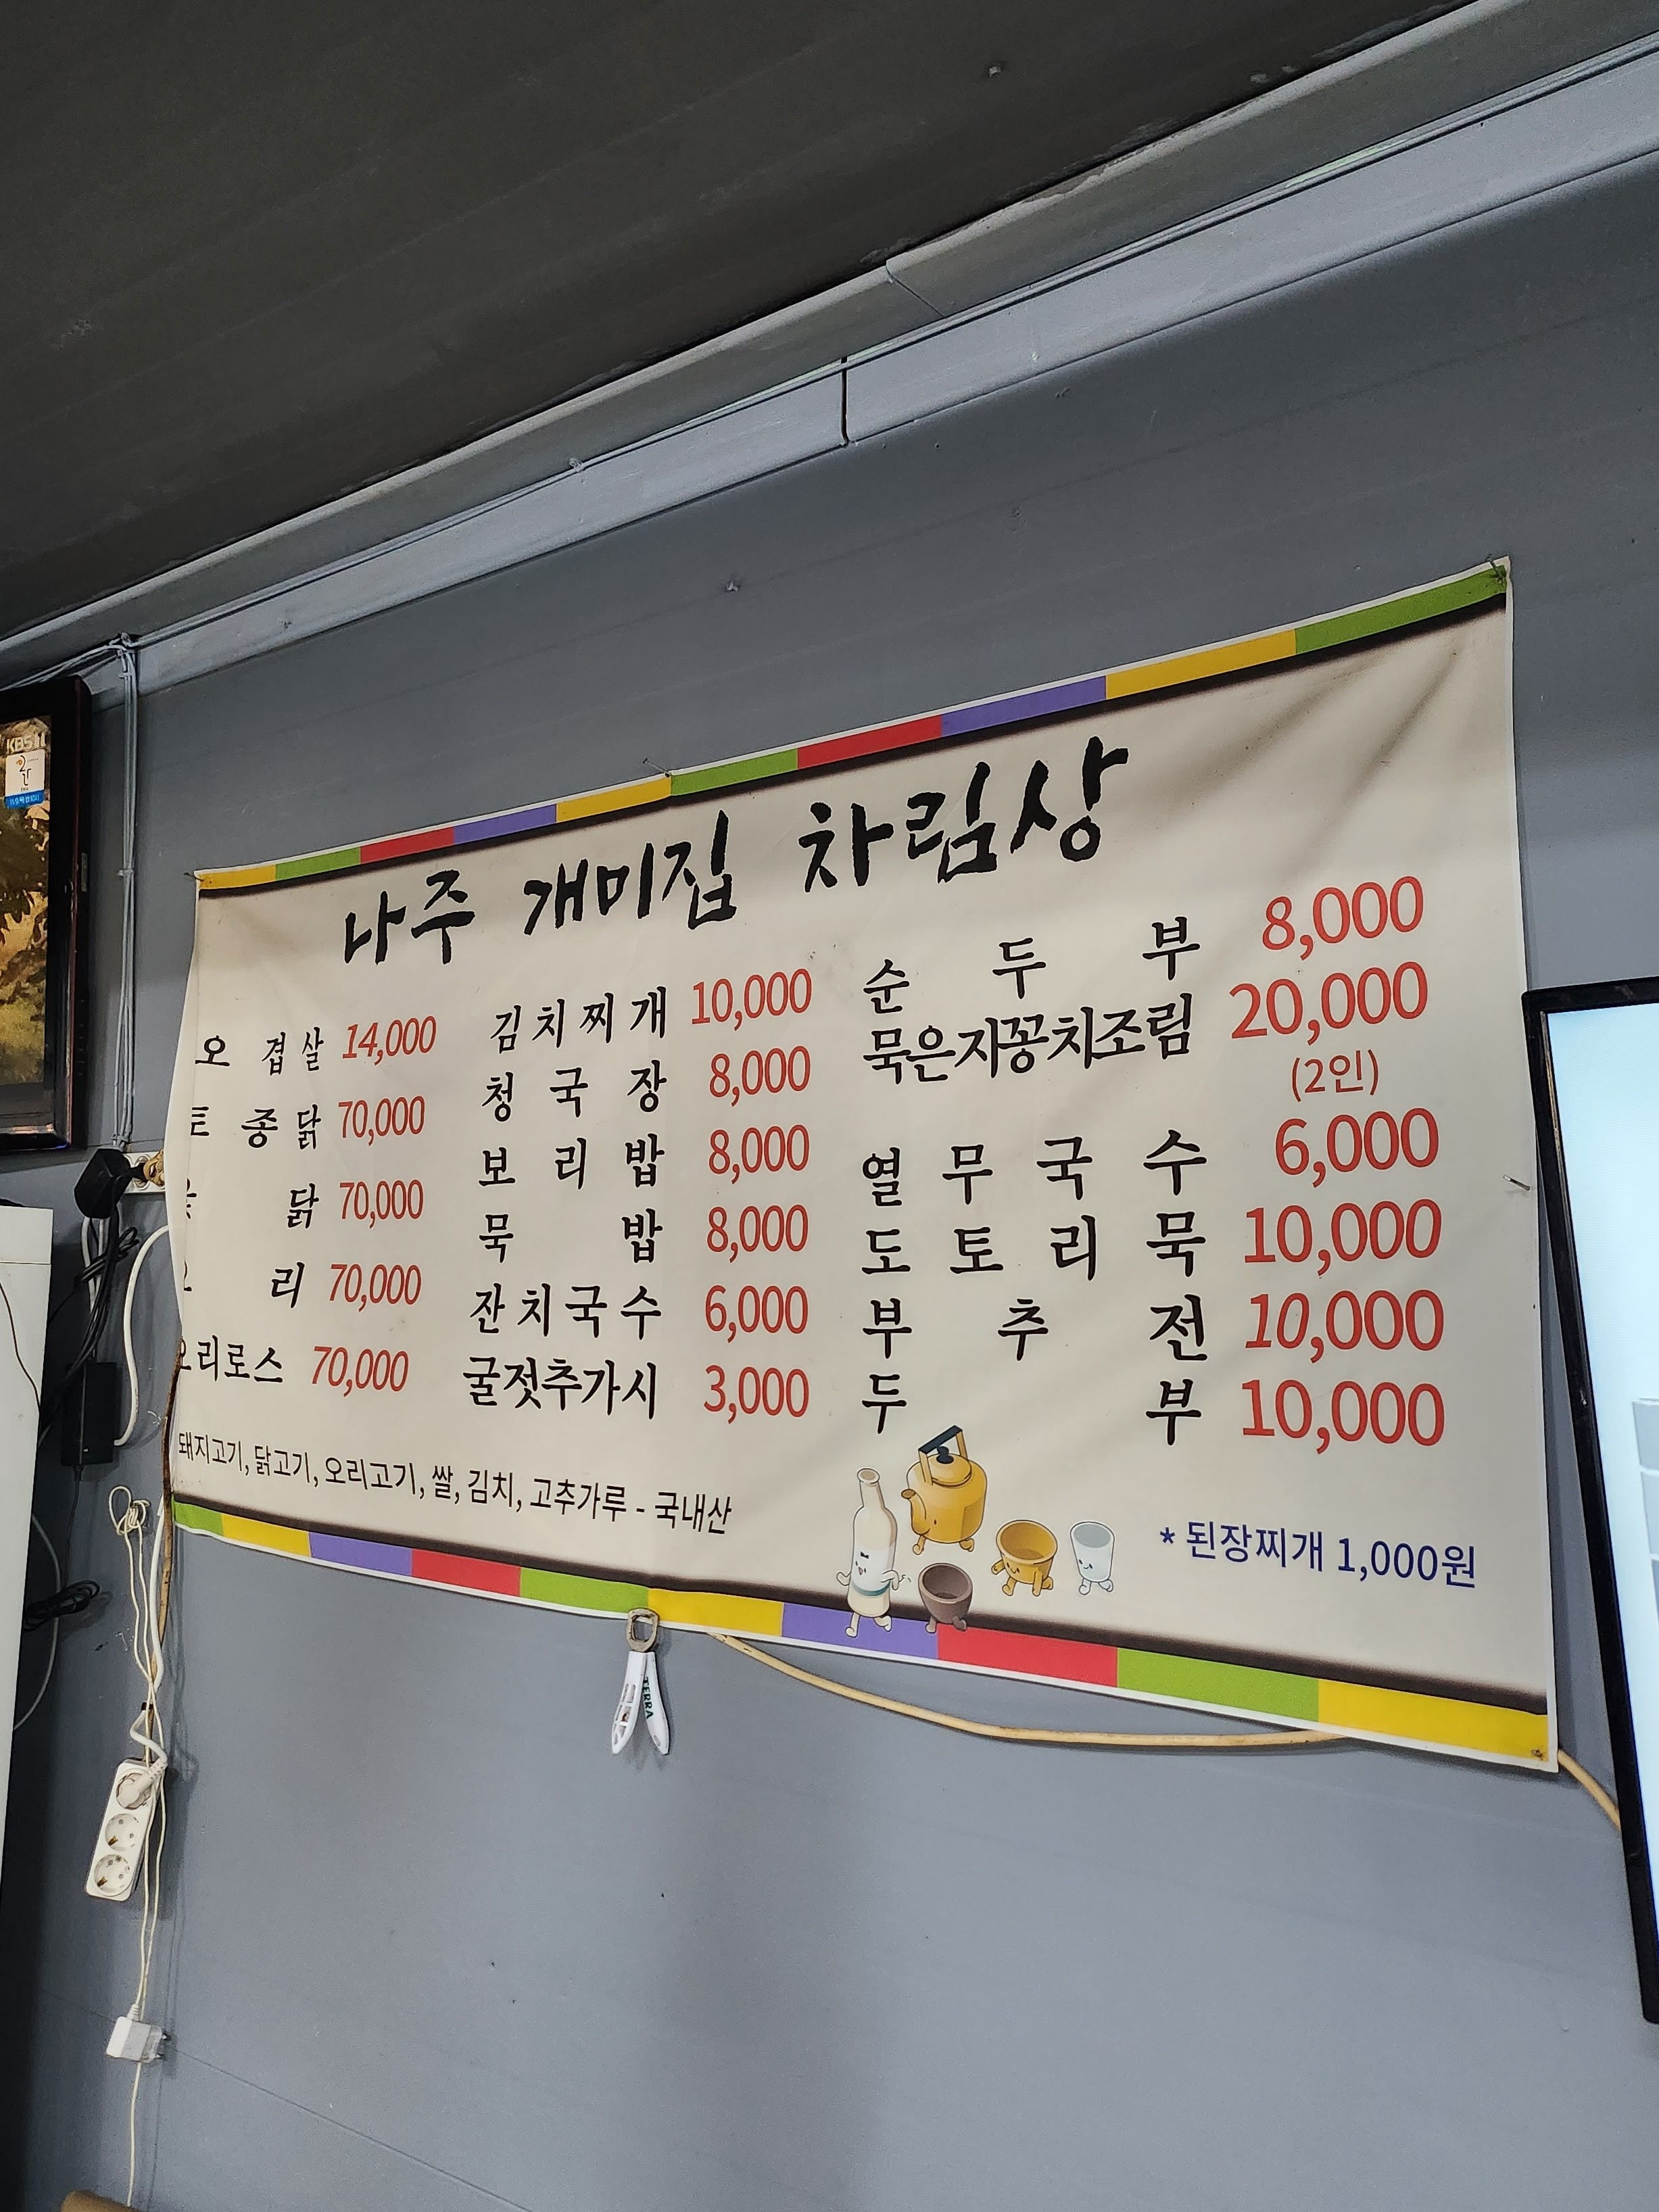 나주 개미집 차림상
오겹살 14,000
토종닭 70,000
닭 70,000
오리 70,000
오리로스 70,000
김치찌개 10,000
청국장 8,000
보리밥 8,000
묵밥 8,000
잔치국수 6,000
굴젓추가시 3,000
순두부 8,000
묵은지꽁치조림 20,000
(2인)
열무국수 6,000
도토리묵 10,000
부추전 10,000
두부 10,000
돼지고기, 닭고기, 오리고기, 쌀, 김치, 고추가루 - 국내산
* 된장찌개 1,000원
TERRA
KBS 1